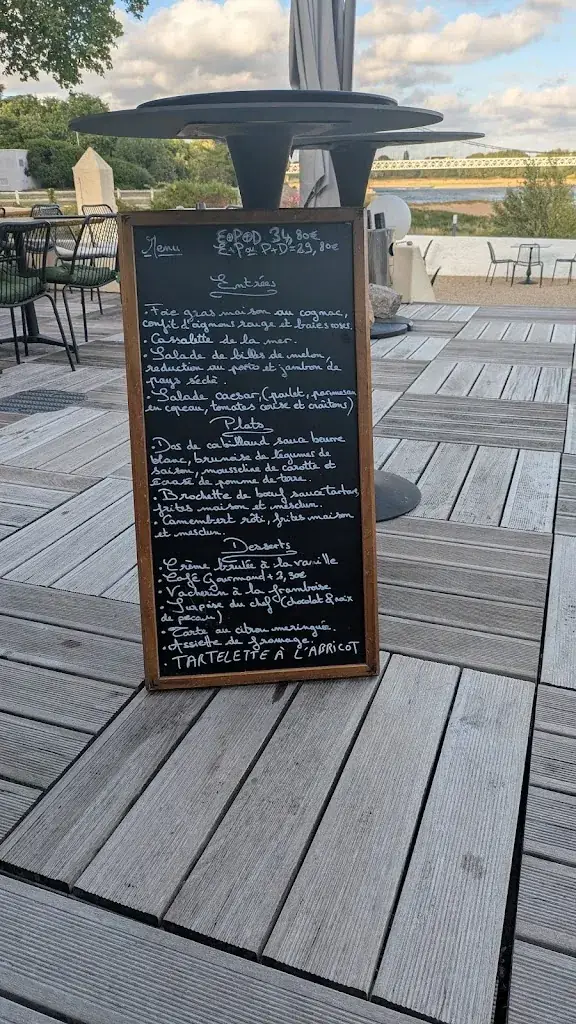 Menu
E+P+D 34,80€
E+P ou P+D = 29,80€
Entrées
Foie gras maison au cognac,
confit d'oignons rouge et baies roses.
• Cassolette de la mer.
• Salade de billes de melon,
reduction au porto et jambon de
pays séché.
• Salade caesar, (poulet, parmesan
en copeau, tomates cerise et croûtons)
Plats
Dos de cabillaud sauce beurre
blanc, brunoise de légumes de
saison, mousseline de carotte et
écrasé de pomme de terre.
• Brochette de bœuf sauce tartar,
frites maison et mesclun.
• Camembert rôti, frites maison
et mesclun.
Desserts
Crème brulée à la vanille
Café Gourmand + 2,30€
Vacherin à la framboise
• Surprise du chef (chocolat & noix
de pecan)
• Tarte au citron meringuée.
• Assiette de fromage.
• TARTELETTE À L'ABRICOT